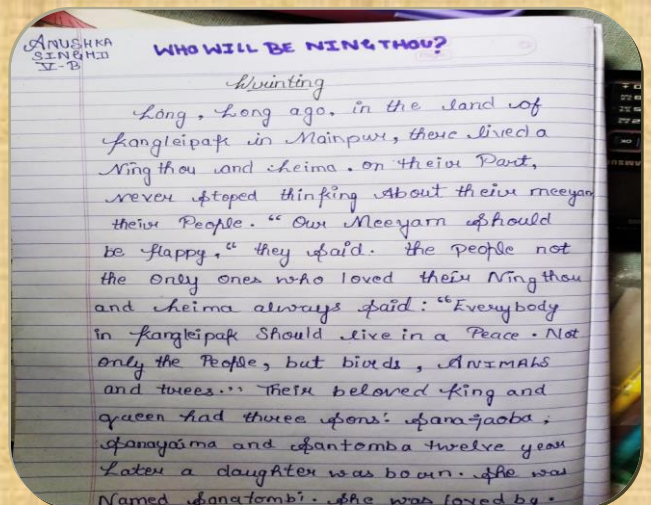 ANUSHKA
SINGH
V-B
WHO WILL BE NINGTHOU?
Writing
Long, Long ago, in the land of
Kangleipak in Mainpur, there lived a
Ningthou and cheima. on their Part,
never stoped thinking About their meeyam
their People. "Our Meeyam should
be Happy," they said. the People not
the only ones who loved their Ningthou
and cheima always said: "Everybody
in Kangleipak Should live in a Peace. Not
only the People, but birds, ANIMALS
and trees." Their beloved King and
queen had three sons: Sanajaoba,
Sanayaima and Santomba twelve year
Later a daughter was born. She was
Named Sanatombi. She was loved by.